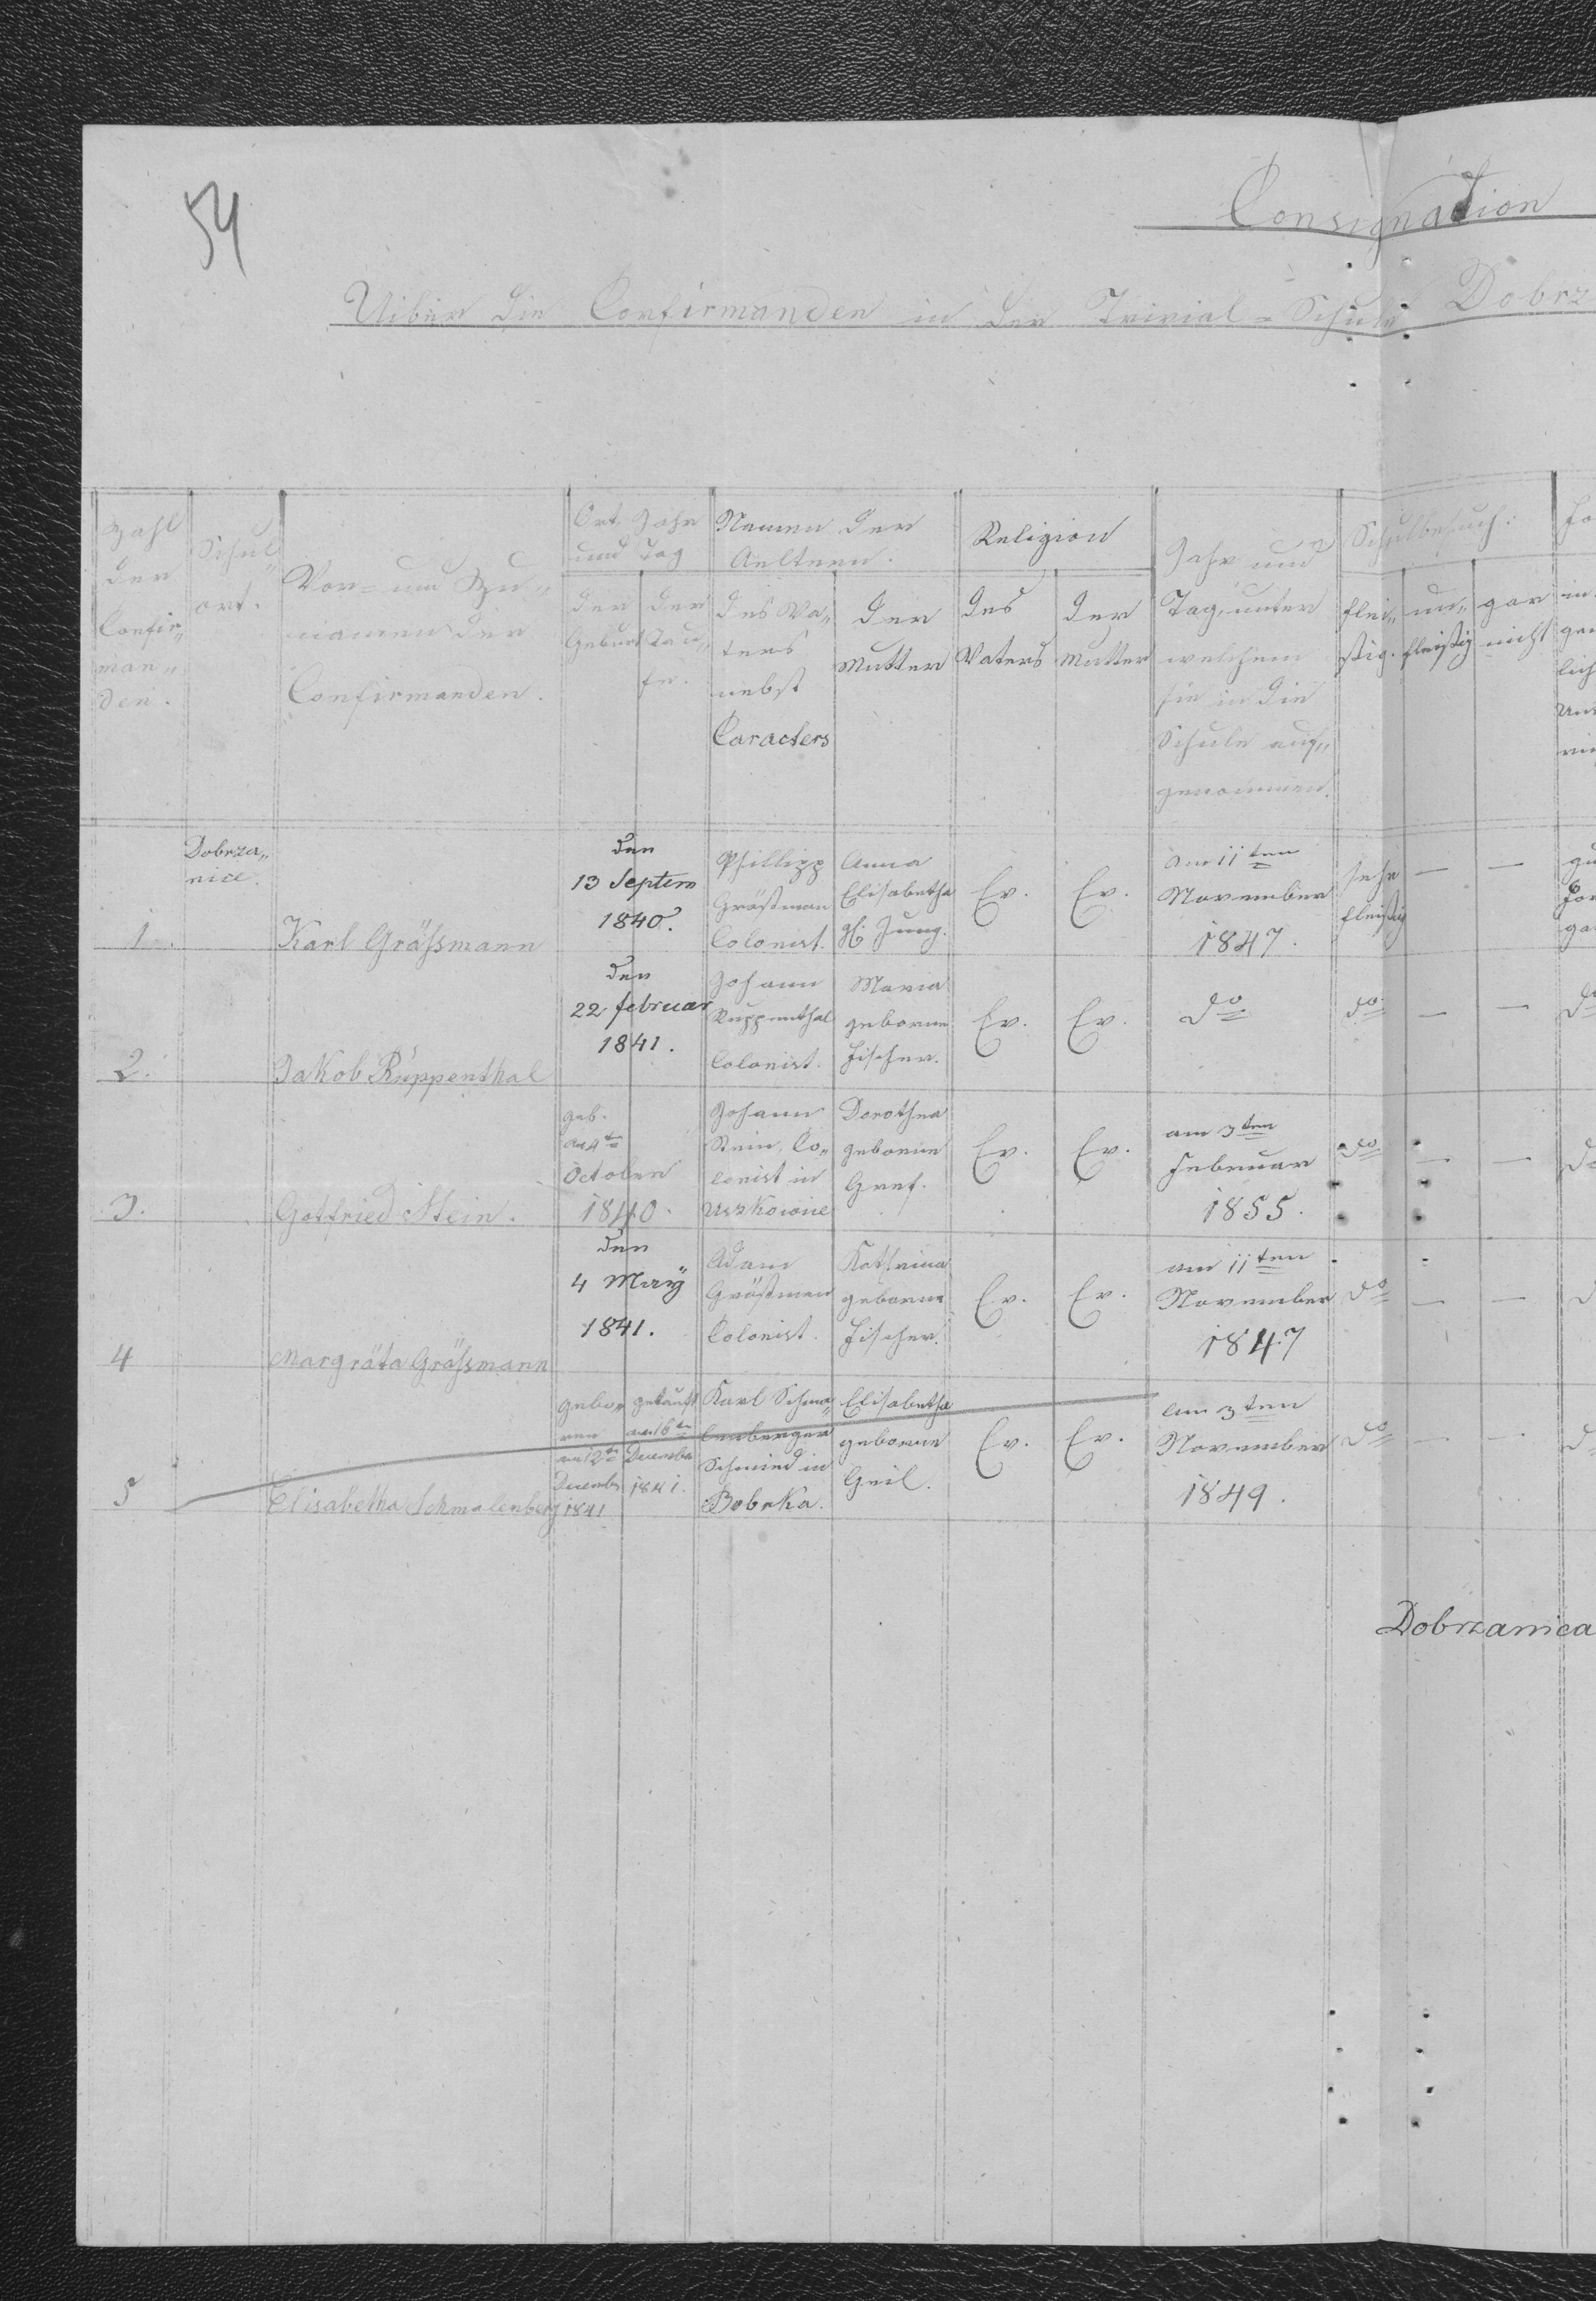 54
Consignation
Uiber die Confirmanden in der Trivial-Schule Dobrz
Zahl
der
Confir„
man„
den.
Schul„
ort.
Vor= und Zu„
namen der
Confirmanden.
Ort, Jahr
und Tag
der
Geburt
der
Tau„
fe.
Namen der
Aeltern.
des Va„
ters
nebst
Caracters
der
Mutter
Religion
des
Vaters
der
Mutter
Jahr und
Tag, unter
welchem
sie in die
Schule auf„
genommen.
Schulbesuch:
flei„
ßig.
un„
fleißig
gar
nicht
1.
Dobrza„
nice.
Karl Gräſsmann
den
13 Septem
1840.
Phillipp
Gräßman
Colonist.
Anna
Elisabetha
Jung.
Ev.
Ev.
am 11ten
November
1847.
sehr
fleißig
—
—
2.
Jakob Ruppenthal
den
22 februar
1841.
Johann
Ruppenthal
Colonist.
Maria
geborne
Fischer.
Ev.
Ev.
do
do
—
—
3.
Gottfried Stein.
geb.
am 4ten
October
1840.
Johann
Stein, Co„
lonist in
Uszkowice
Dorothea
geborne
Gref.
Ev.
Ev.
am 3ten
Februar
1855.
do
—
—
4
Margräta Gräſsmann
den
4 May
1841.
Adam
Gräßman
Colonist.
Kathrina
geborne
Fischer.
Ev.
Ev.
am 11ten
November
1847
do
—
—
5
Elisabetha Schmalenberg
gebo„
ren
am 12ten
December
1841
getauft
am 16ten
December
1841.
Karl Schma„
lenberger
Schmied in
Bobrka.
Elisabetha
geborne
Geil.
Ev.
Ev.
am 3ten
November
1849.
do
—
—
Dobrzanica